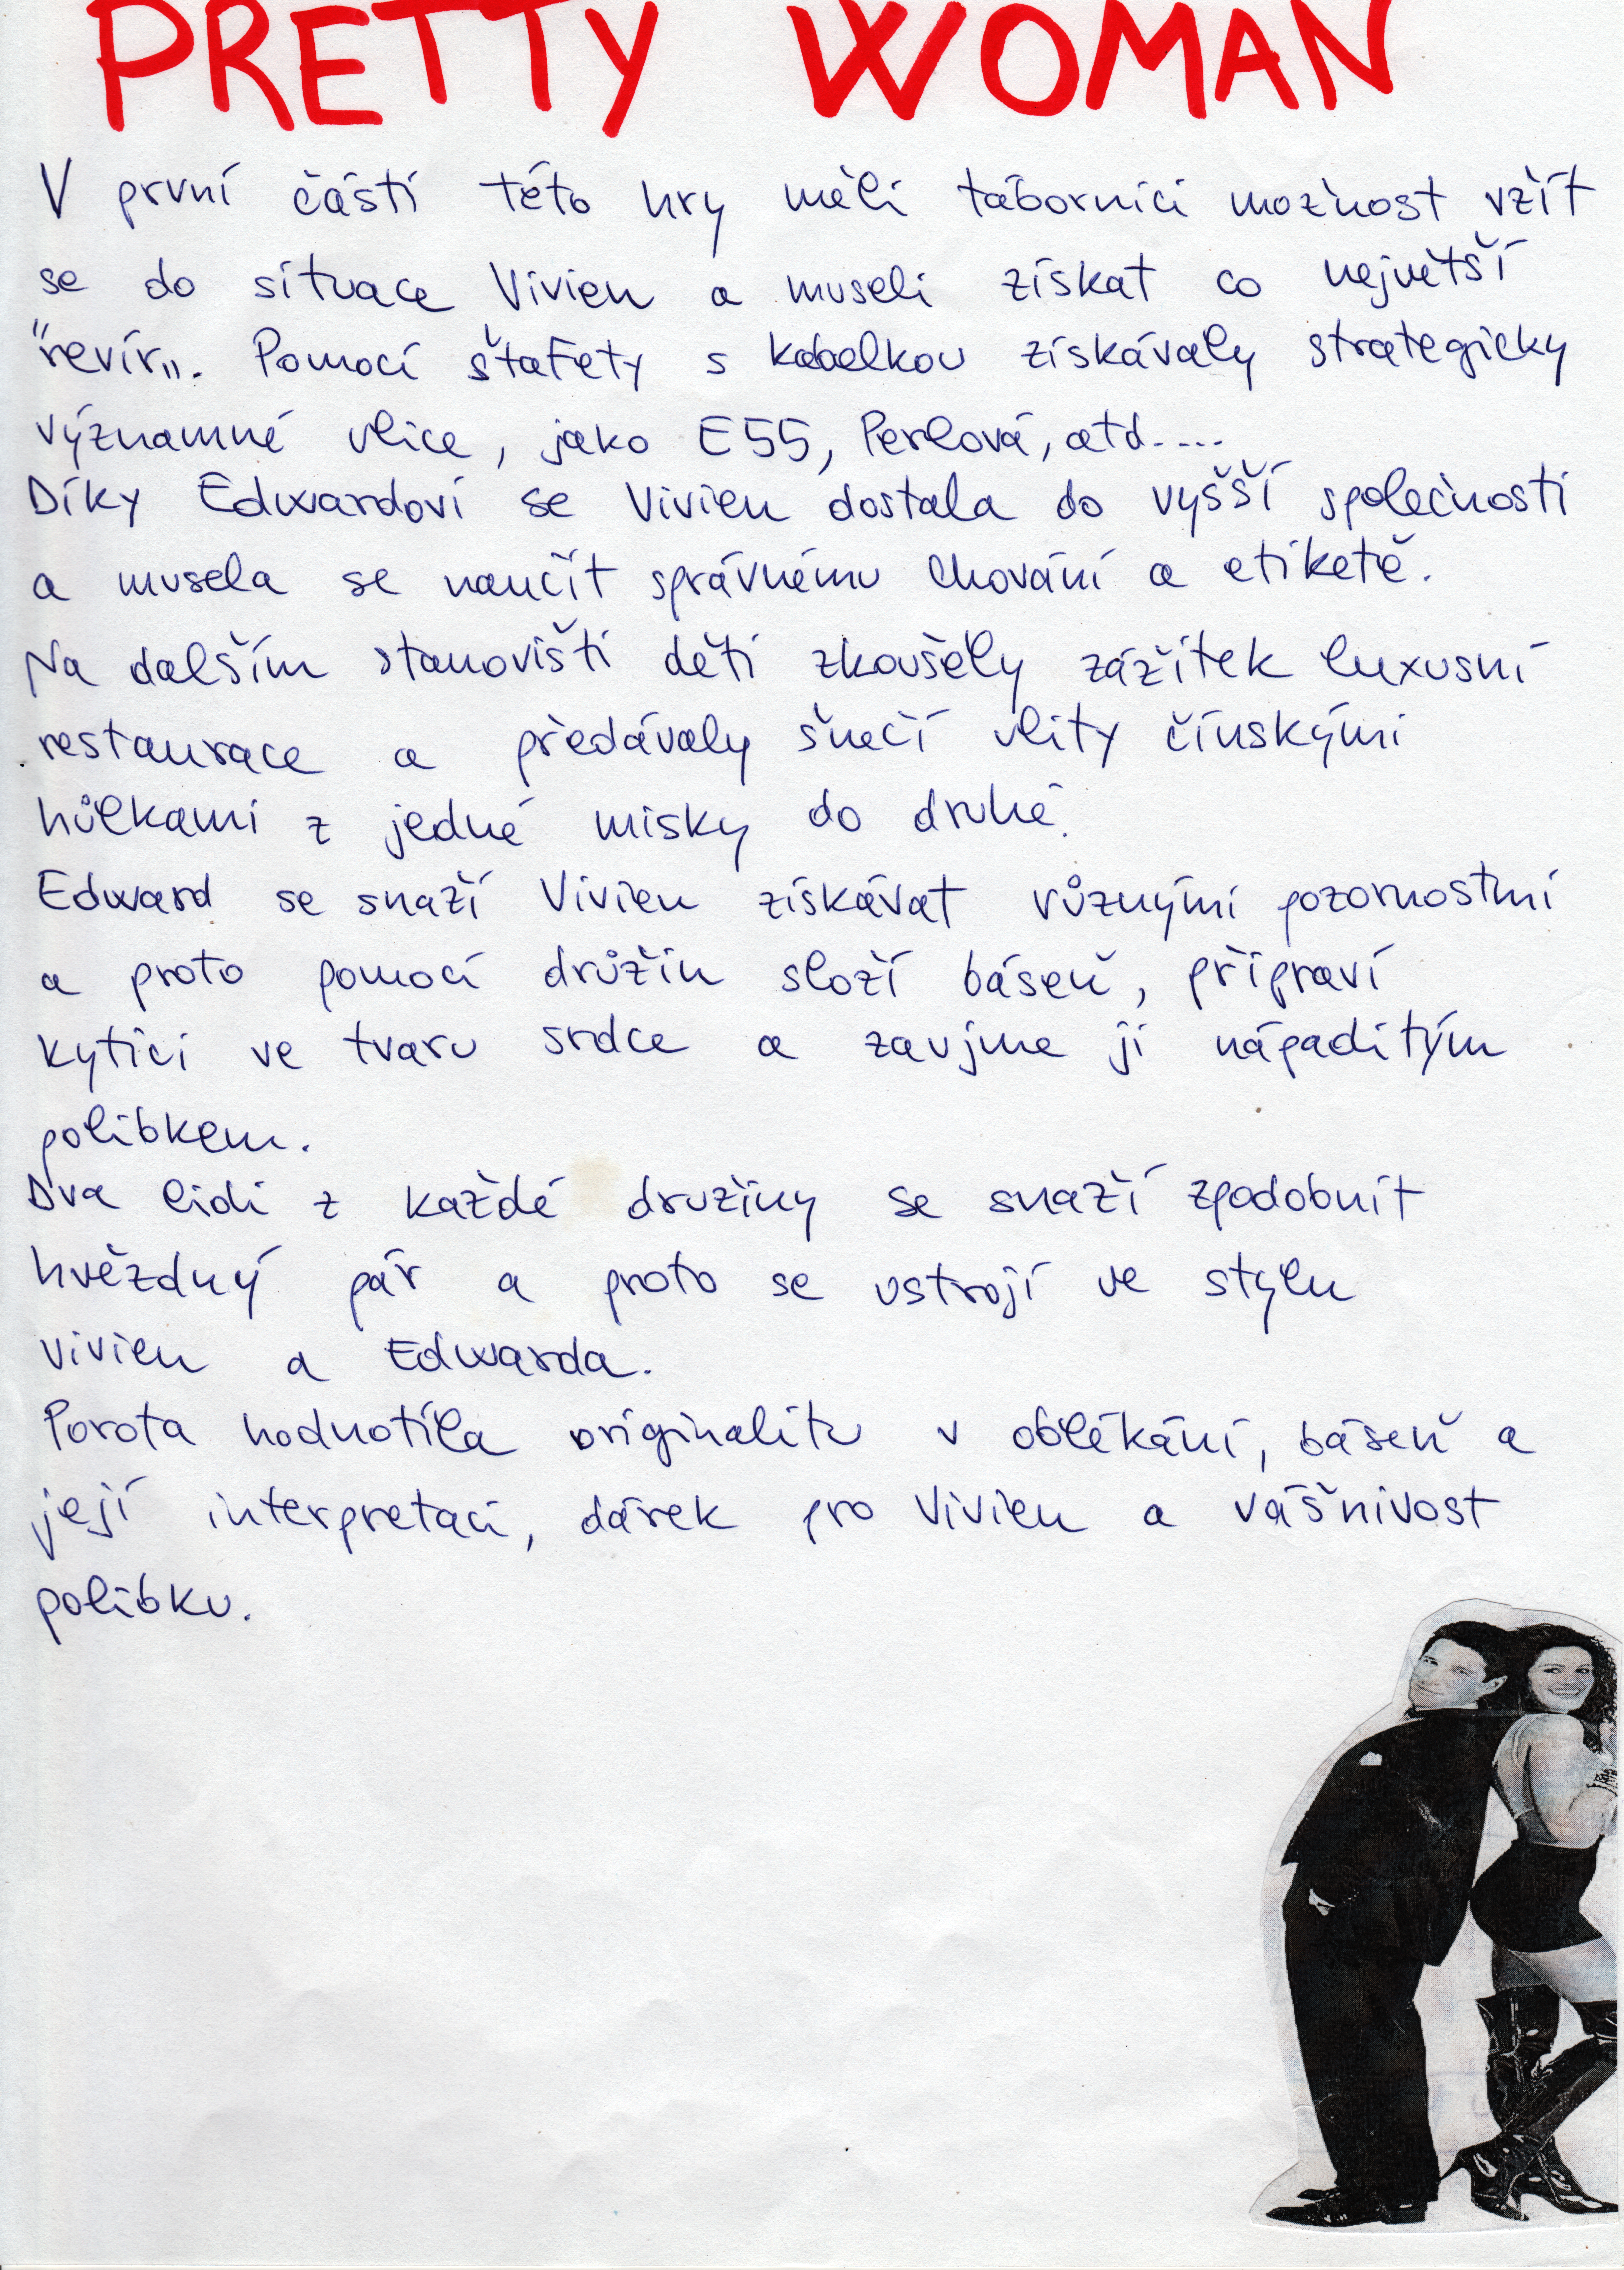 PRETTY WOMAN
V první části této hry měli táborníci možnost vžít
se do situace Vivien a museli získat co největší
"revír„. Pomocí štafety s kabelkou získávaly strategicky
významné ulice, jako E55, Perlová, atd....
Díky Edwardovi se Vivien dostala do vyšší společnosti
a musela se naučit správnému chování a etiketě.
Na dalším stanovišti děti zkoušely zážitek luxusní
restaurace a předávaly šnečí ulity čínskými
hůlkami z jedné misky do druhé.
Edward se snaží Vivien získávat různými pozornostmi
a proto pomocí družin složí báseň, připraví
kytici ve tvaru srdce a zaujme ji nápaditým
polibkem.
Dva lidi z každé družiny se snaží zpodobnit
hvězdný pár a proto se ustrojí ve stylu
Vivien a Edwarda.
Porota hodnotila originalitu v oblékání, báseň a
její interpretaci, dárek pro Vivien a vášnivost
polibku.